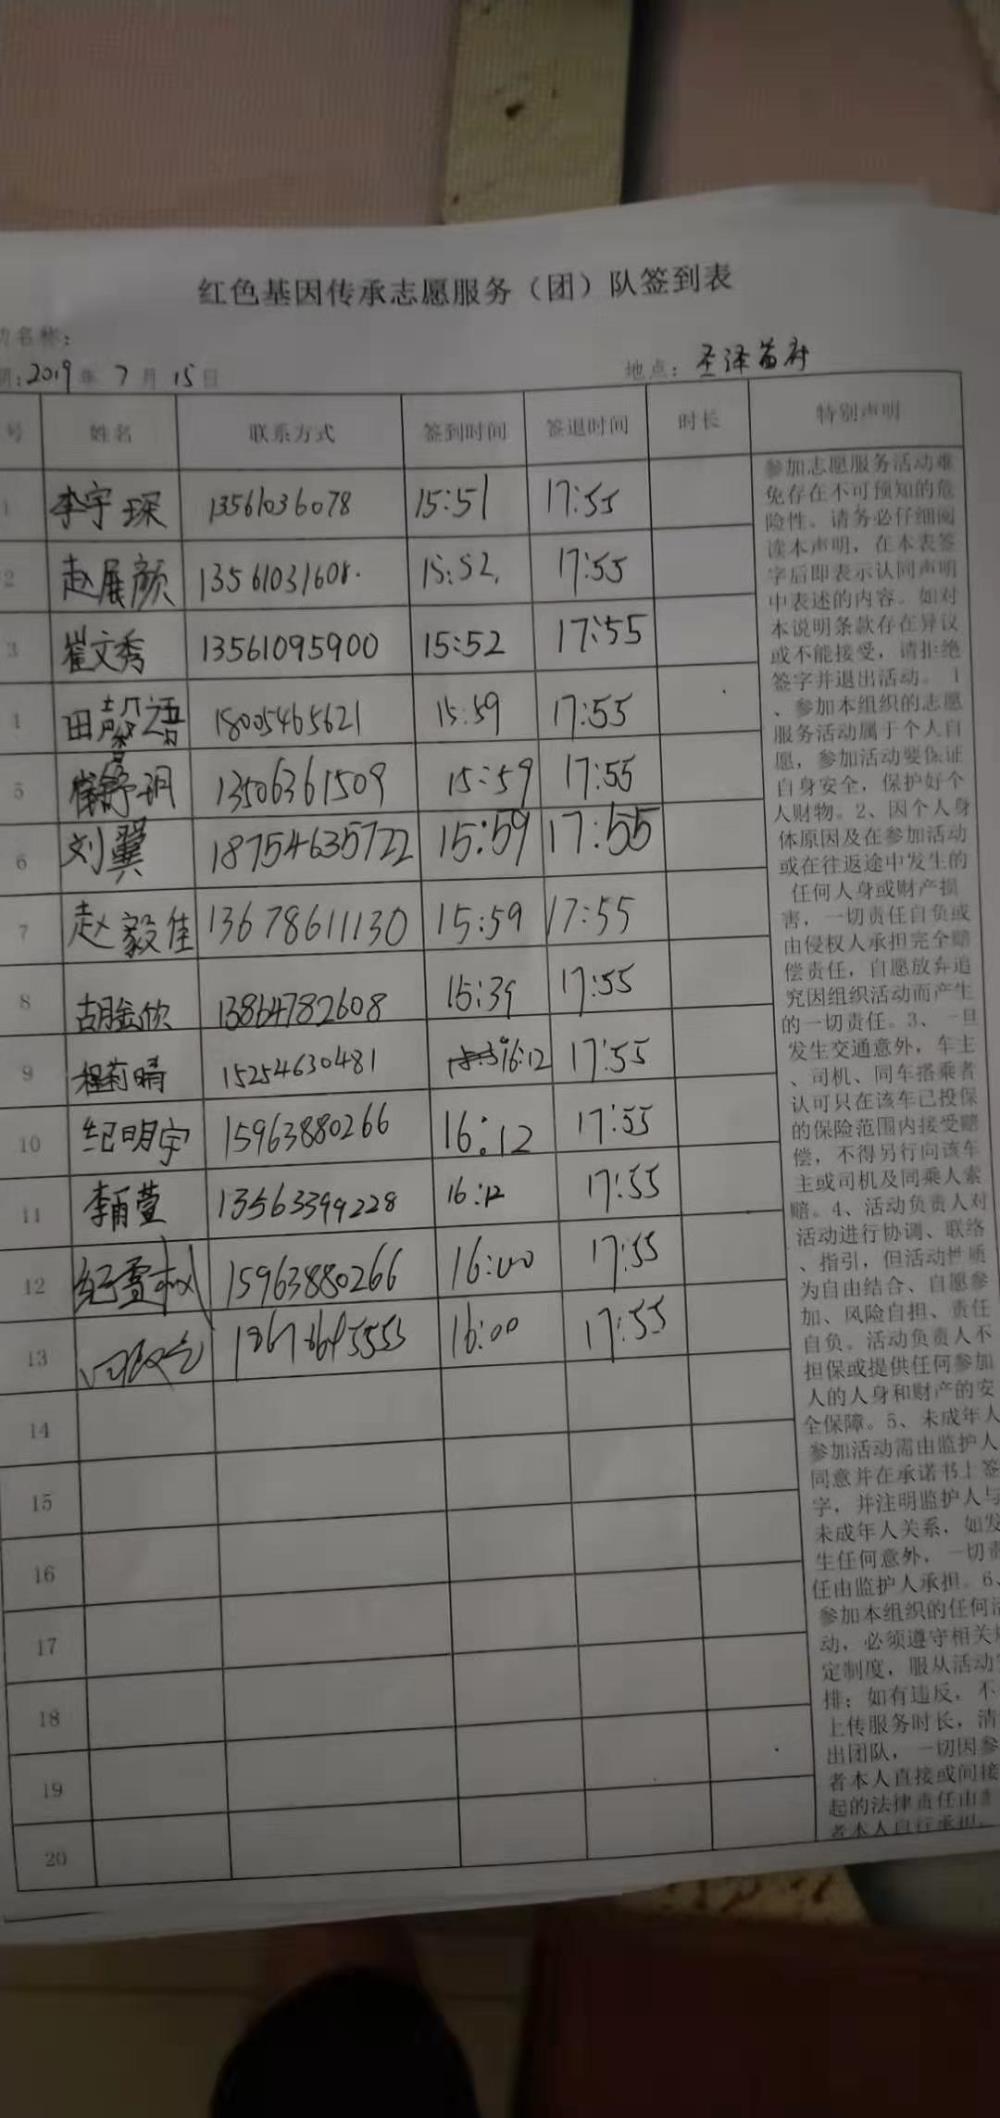 红色基因传承志愿服务（团）队签到表
动名称：
期：2019年7月15日 地点：圣泽首府
号 姓名 联系方式 签到时间 签退时间 时长 特别声明
1 李宇琛 13561036078 15:51 17:55
2 赵展颜 13561031608 15:52 17:55
3 崔文秀 13561095900 15:52 17:55
4 田馨语 18005465621 15:59 17:55
5 崔舒玥 13506361509 15:59 17:55
6 刘翼 18754635722 15:59 17:55
7 赵毅佳 13678611130 15:59 17:55
8 胡金欣 13864782608 15:39 17:55
9 程莉晴 15254630481 16:12 17:55
10 纪明宇 15963880266 16:12 17:55
11 李萱 13563399228 16:12 17:55
12 纪雪 15963880266 16:00 17:55
13 16:00 17:55
14
15
16
17
18
19
20
参加志愿服务活动难
免存在不可预知的危
险性。请务必仔细阅
读本声明，在本表签
字后即表示认同声明
中表述的内容。如对
本说明条款存在异议
或不能接受，请拒绝
签字并退出活动。1
、参加本组织的志愿
服务活动属于个人自
愿，参加活动要保证
自身安全，保护好个
人财物。2、因个人身
体原因及在参加活动
或在往返途中发生的
任何人身或财产损
害，一切责任自负或
由侵权人承担完全赔
偿责任，自愿放弃追
究因组织活动而产生
的一切责任。3、一旦
发生交通意外，车主
、司机、同车搭乘者
认可只在该车已投保
的保险范围内接受赔
偿，不得另行向该车
主或司机及同乘人索
赔。4、活动负责人对
活动进行协调、联络
、指引，但活动性质
为自由结合、自愿参
加、风险自担、责任
自负。活动负责人不
担保或提供任何参加
人的人身和财产的安
全保障。5、未成年人
参加活动需由监护人
同意并在承诺书上签
字，并注明监护人与
未成年人关系，如发
生任何意外，一切责
任由监护人承担。6、
参加本组织的任何活
动，必须遵守相关规
定制度，服从活动安
排；如有违反，不
上传服务时长，清
出团队，一切因参
者本人直接或间接
起的法律责任由
者本人自行承担。